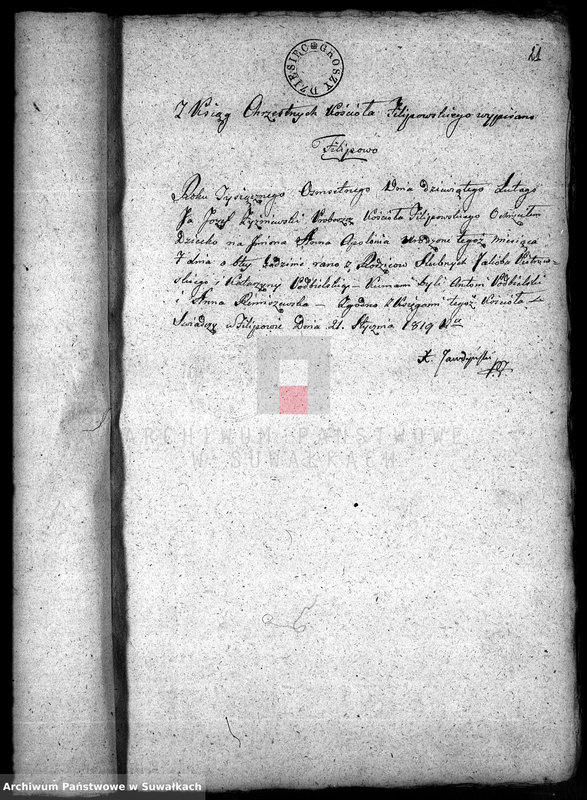 11
DZIESIĘC GROSZY
Z Ksiąg Chrzestnych Kościoła Filipowskiego wypisano
Filipowo
Roku Tysiącznego Osmsetnego Dnia dziewiątego Lutego
Ja Józef Proboszcz Kościoła Filipowskiego Ochrzciłem
Dziecko na Imiona Anna Apolonia urodzone tegoż miesiąca
7 dnia o 6tey Godzinie rano z Rodziców Slubnych Jakoba
skiego i Katarzyny Podbielskiey — Kumami byli Antoni Podbielski
i Anna — Zgodno z Księgami tegoż Kościoła
Swiadczę w Filipowie Dnia 21. Stycznia 1819 Ru
X.
ARCHIWUM PAŃSTWOWE
W SUWAŁKACH
Archiwum Państwowe w Suwałkach